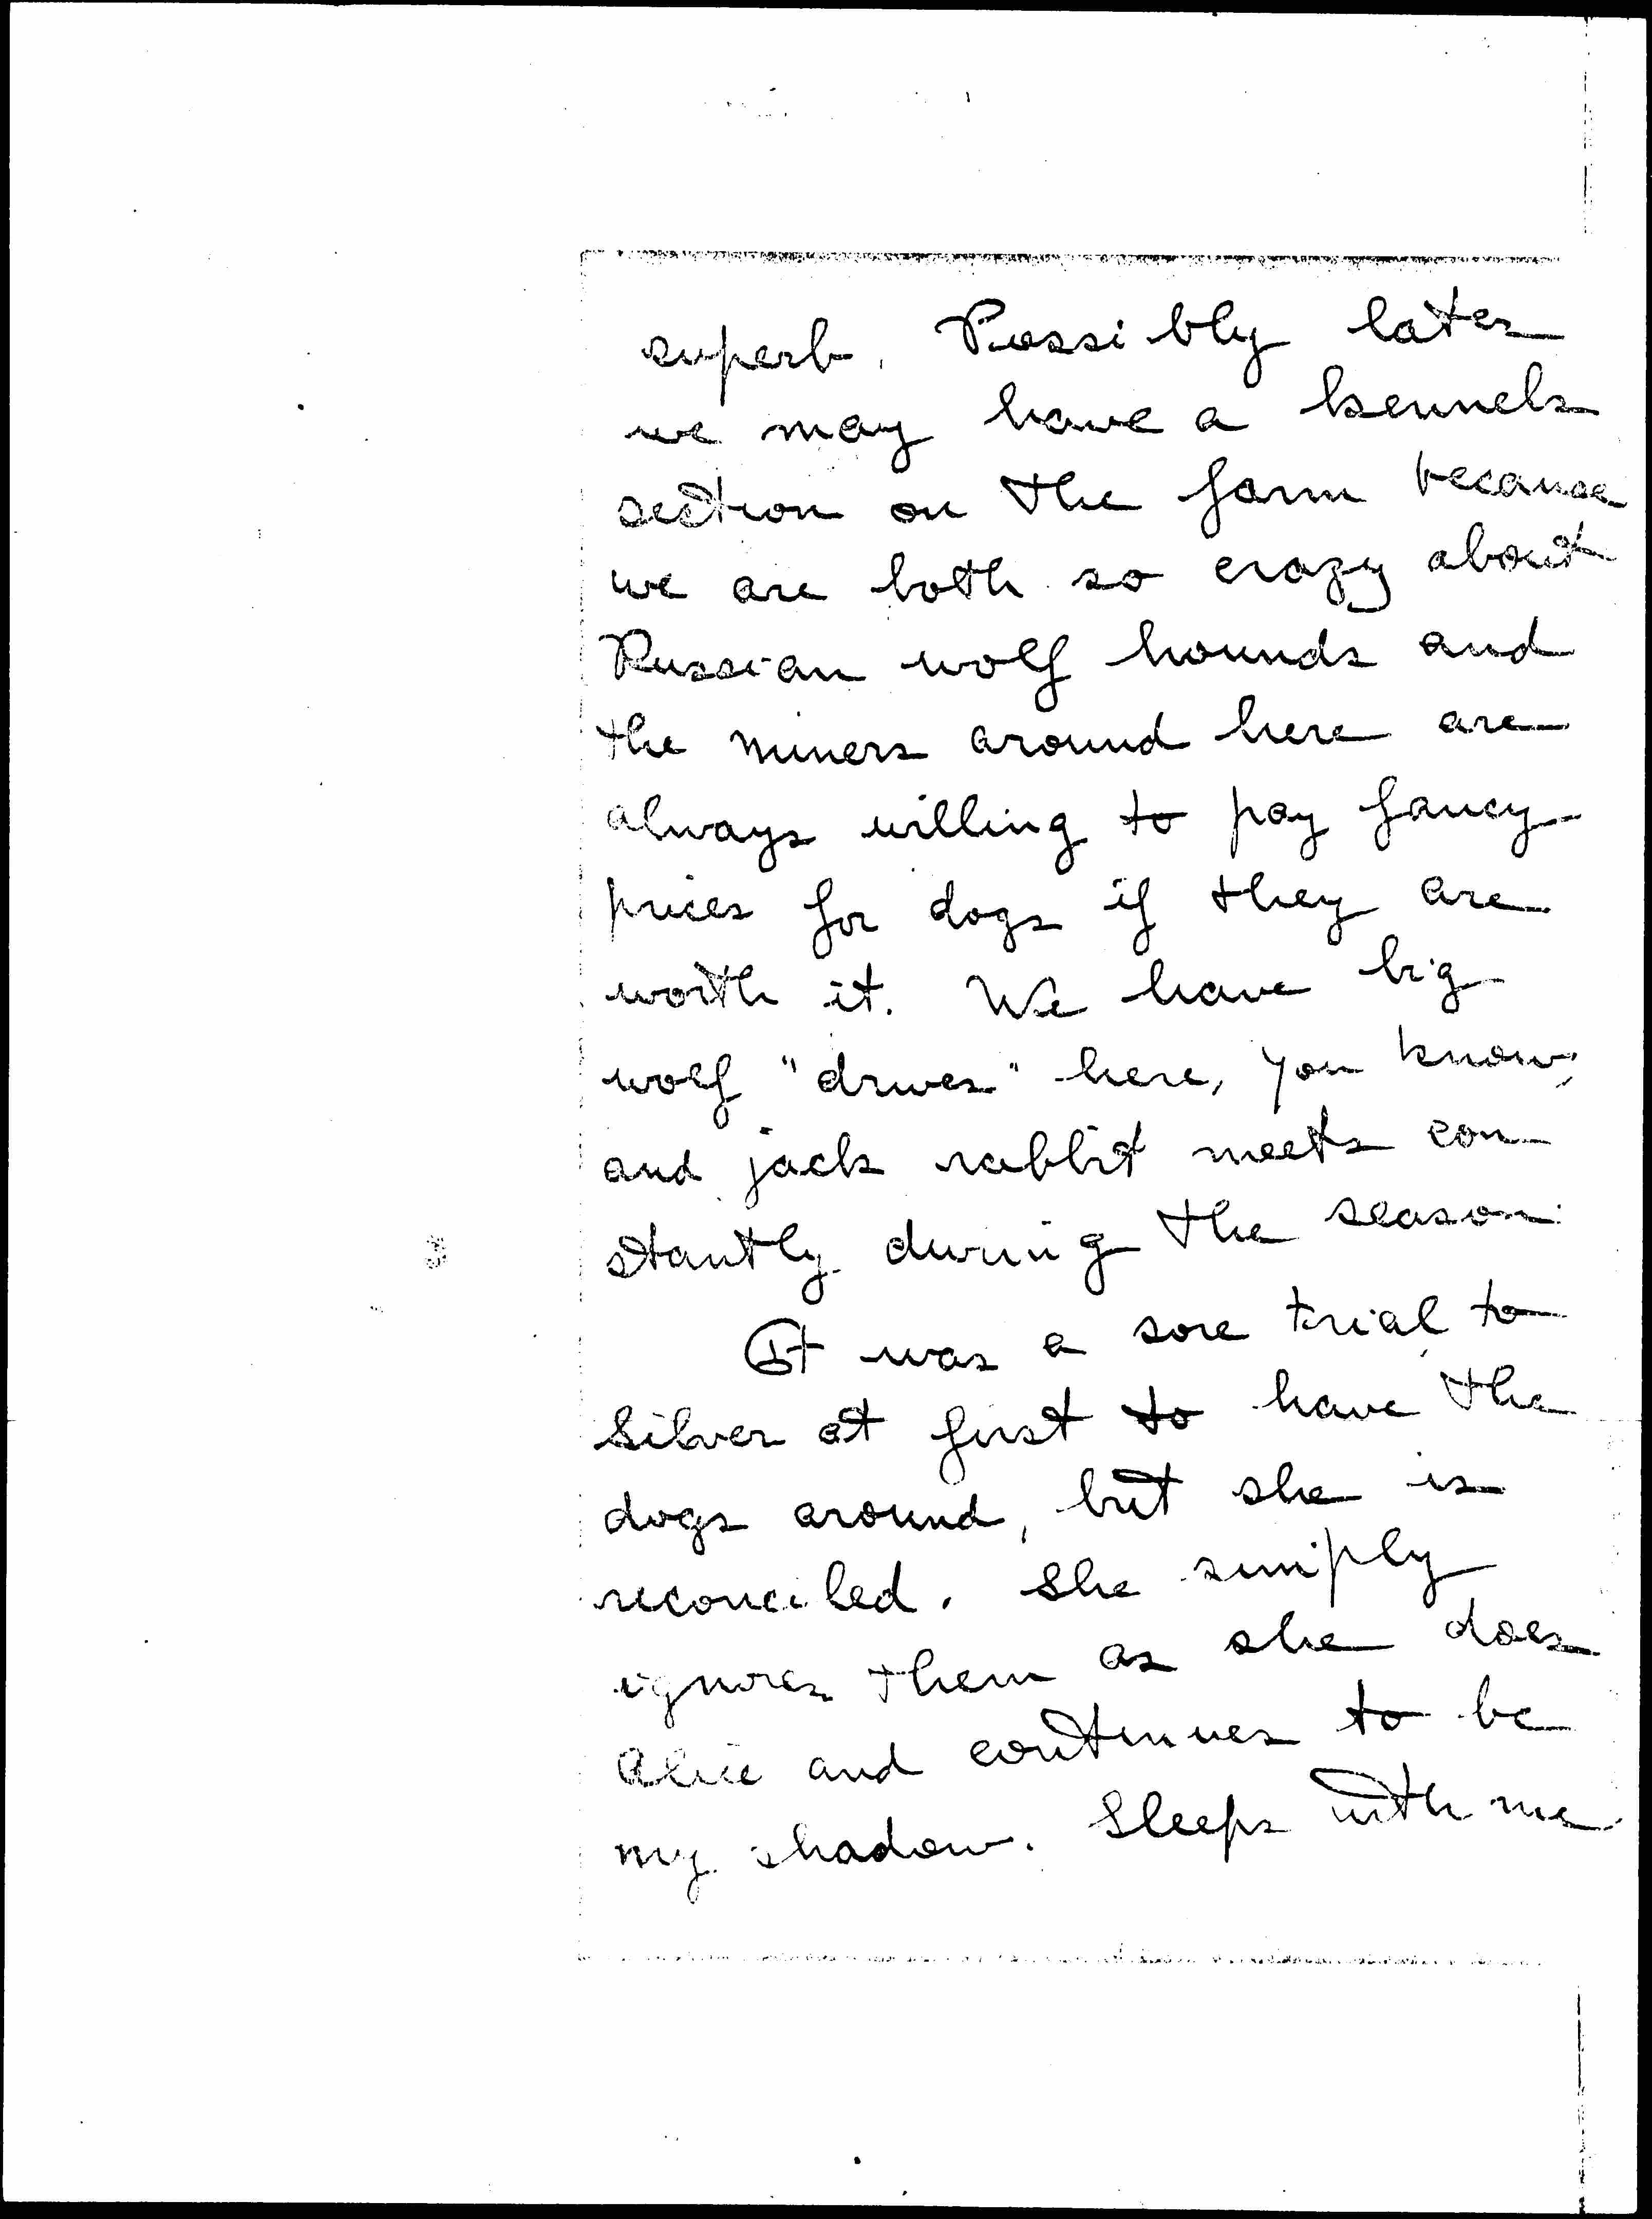 superb. Possibly later
we may have a kennels
section on the farm because
we are both so crazy about
Russian wolf hounds and
the miners around here are
always willing to pay fancy
prices for dogs if they are
worth it. We have big
wolf "drives" here, you know,
and jack rabbit meets con-
stantly during the season.
It was a sore trial to
Silver at first to have the
dogs around, but she is
reconciled. She simply
ignores them as she does
Alice and continues to be
my shadow. Sleeps with me